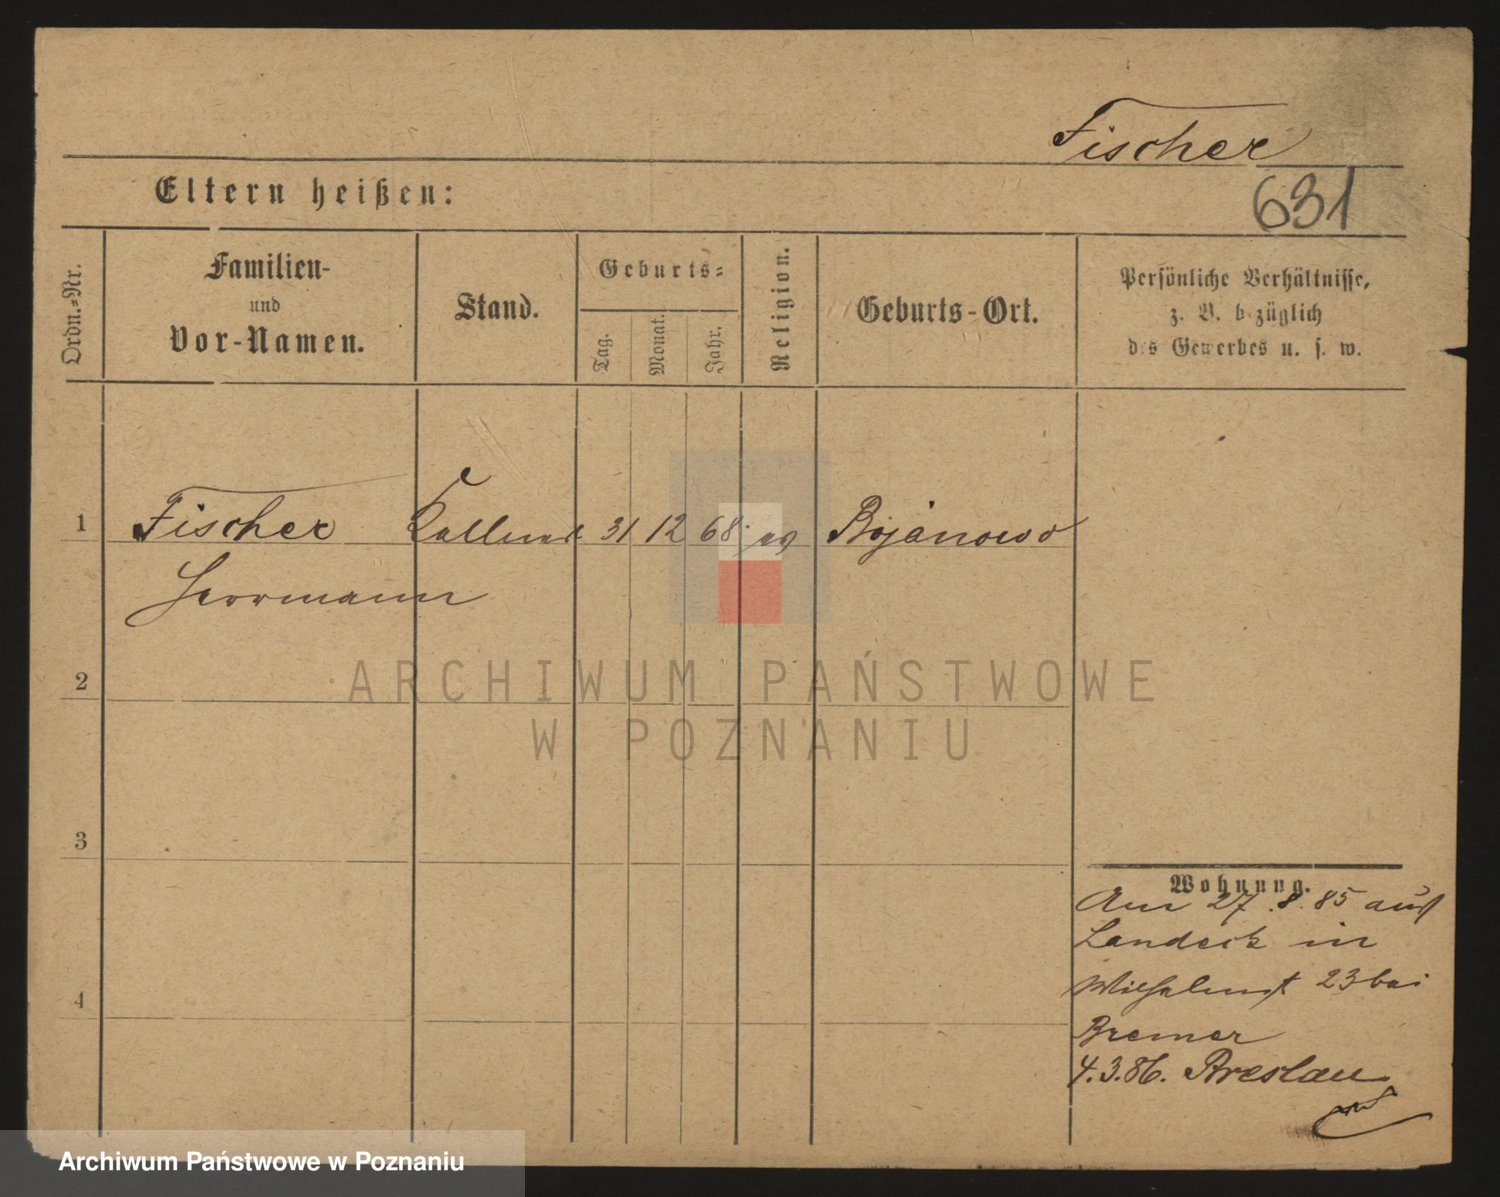 Fischer
631
Eltern heißen:
Ordn.-Nr.
Familien-
und
Vor-Namen.
Stand.
Geburts-
Tag.
Monat.
Jahr.
Religion.
Geburts-Ort.
Persönliche Verhältnisse,
z. B. bezüglich
des Gewerbes u. s. w.
1 Fischer Kellner 31 12 68 ev Bojanowo
Herrmann
2
3
4
Wohnung.
Am 27.8.85 aus
Landeck in
Wilhelmst 23 bei
Bremer
4.3.86. Breslau
ARCHIWUM PAŃSTWOWE
W POZNANIU
Archiwum Państwowe w Poznaniu